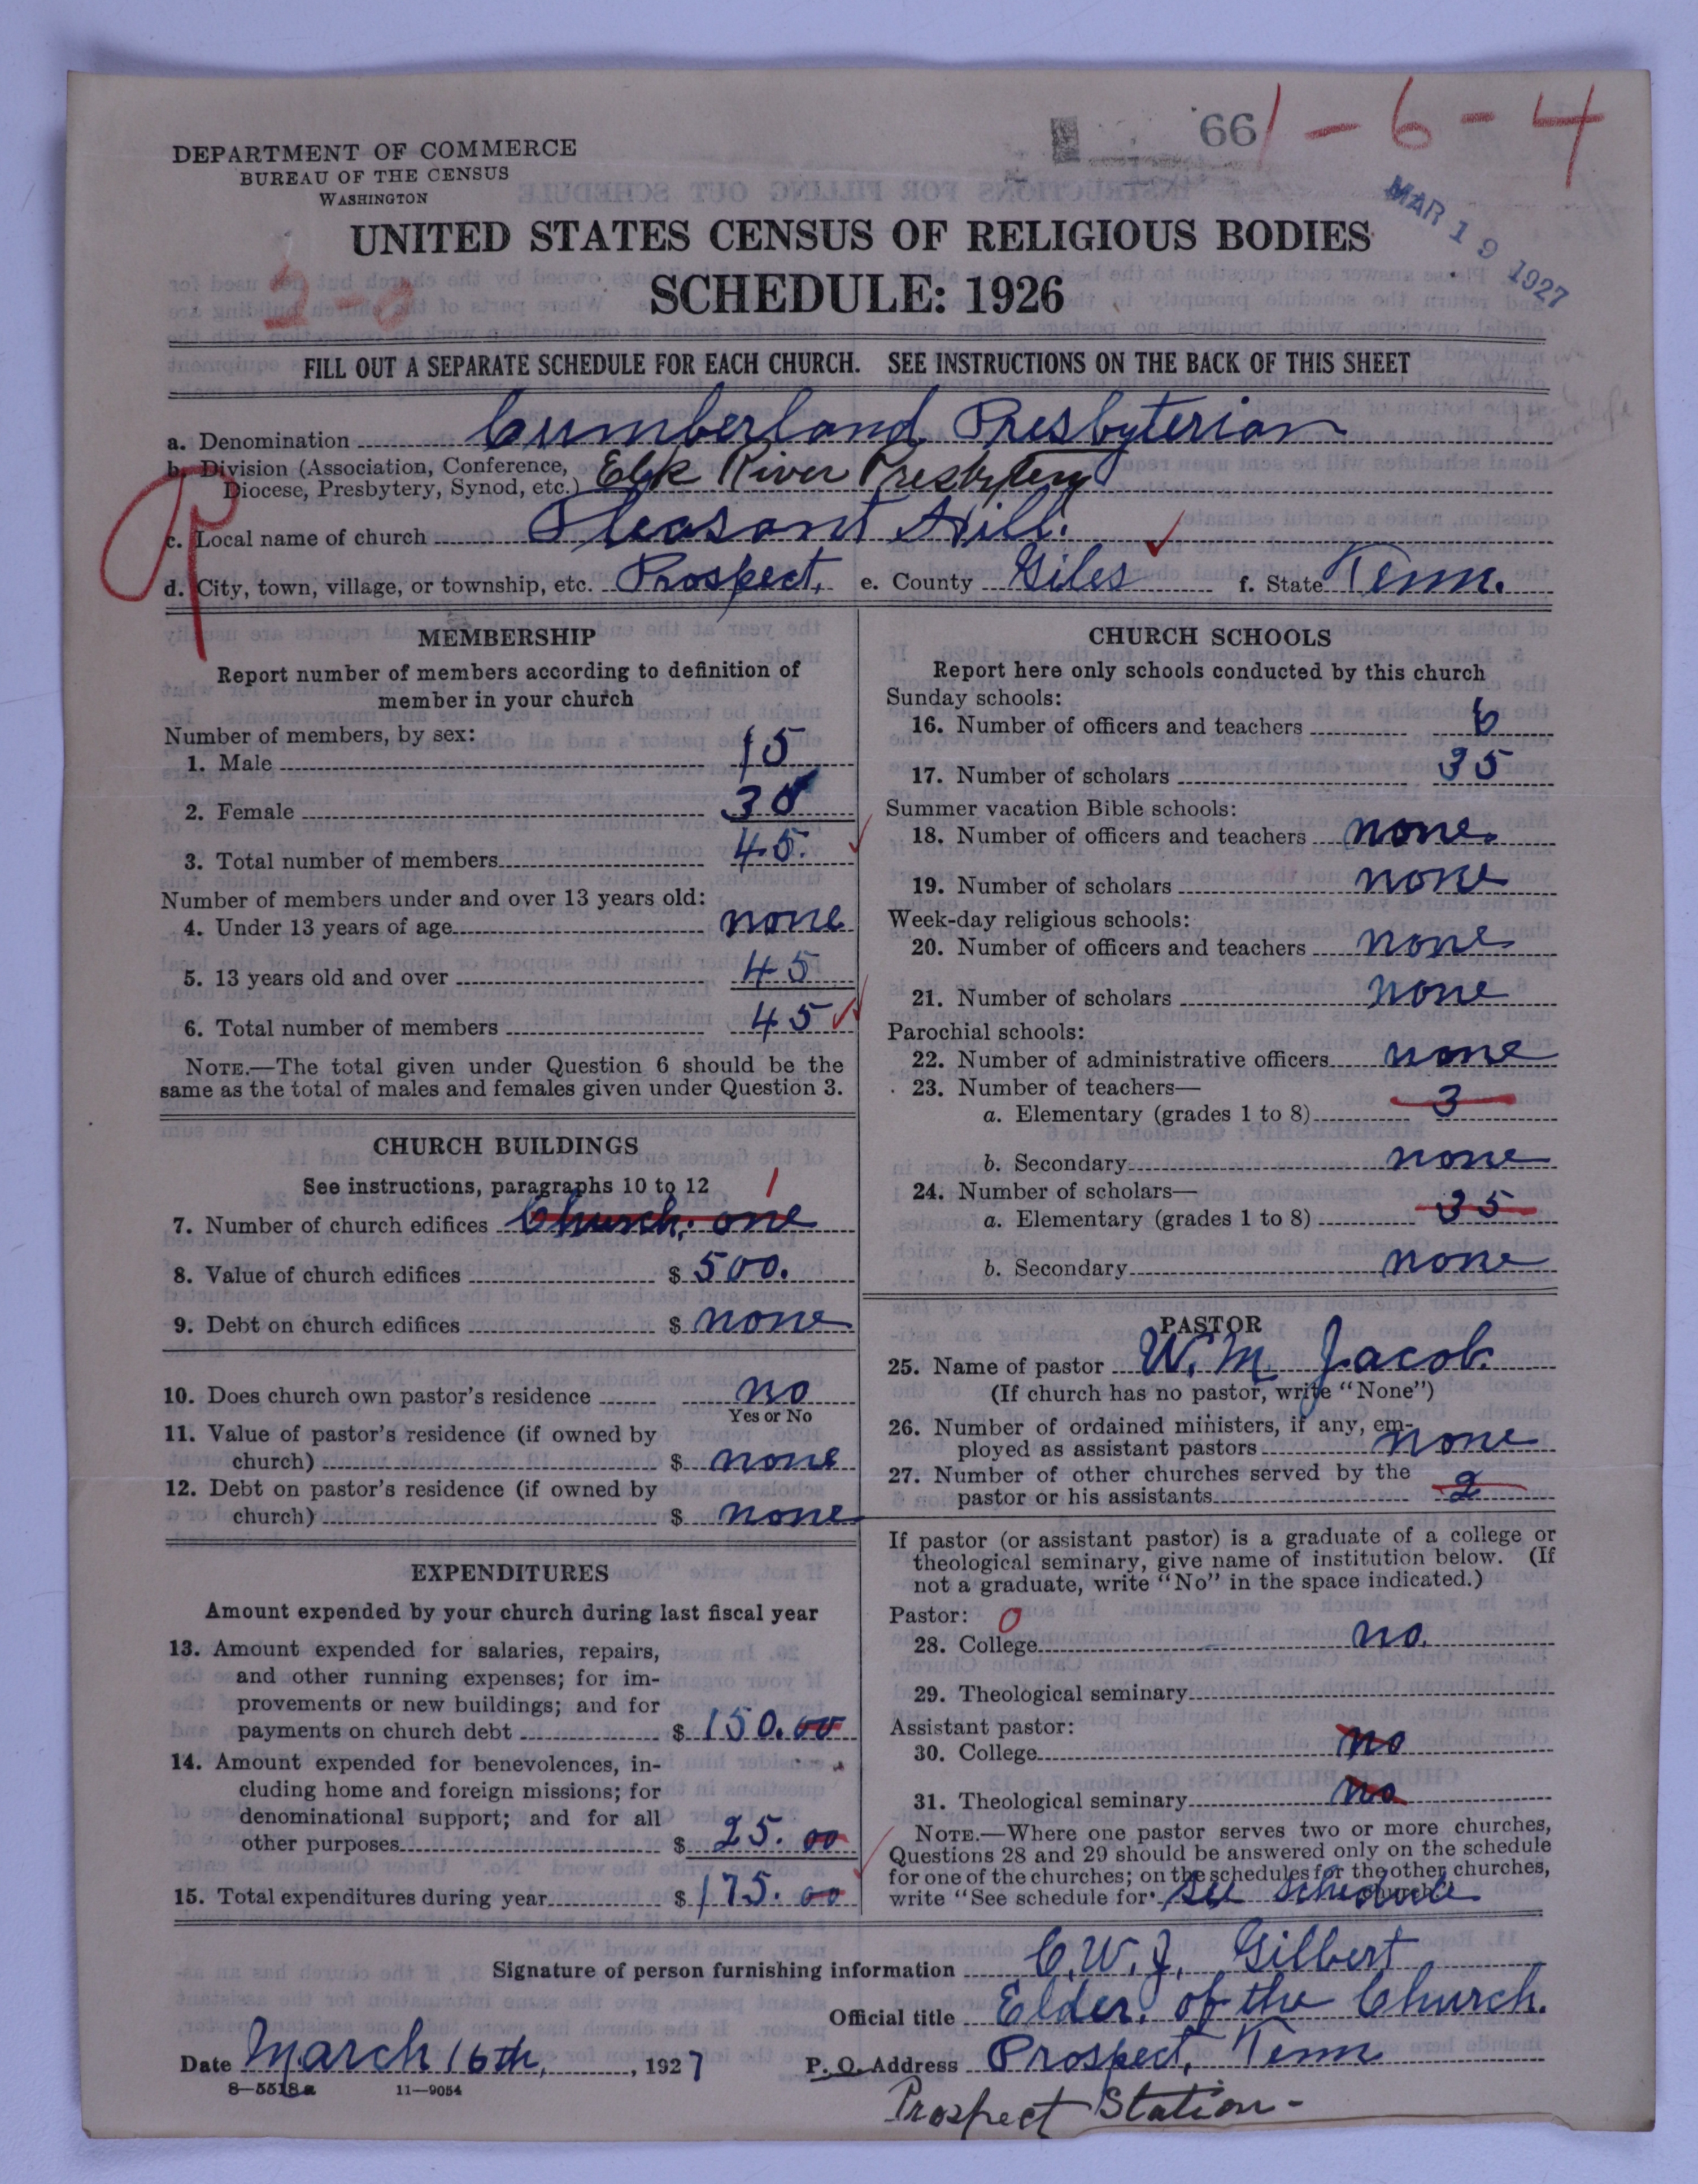 661-6-4
DEPARTMENT OF COMMERCE
BUREAU OF THE CENSUS
WASHINGTON
MAR 19 1927
UNITED STATES CENSUS OF RELIGIOUS BODIES
SCHEDULE: 1926
FILL OUT A SEPARATE SCHEDULE FOR EACH CHURCH. SEE INSTRUCTIONS ON THE BACK OF THIS SHEET
a. Denomination Cumberland Presbyterian
b. Division (Association, Conference, Diocese, Presbytery, Synod, etc.) Elk River Presbytery
c. Local name of church Pleasant Hill.
d. City, town, village, or township, etc. Prospect, e. County Giles f. State Tenn.
MEMBERSHIP
Report number of members according to definition of
member in your church
Number of members, by sex:
1. Male 15
2. Female 30
3. Total number of members 45.
Number of members under and over 13 years old:
4. Under 13 years of age none
5. 13 years old and over 45
6. Total number of members 45
NOTE.—The total given under Question 6 should be the
same as the total of males and females given under Question 3.
CHURCH BUILDINGS
See instructions, paragraphs 10 to 12
1
7. Number of church edifices Church. one
8. Value of church edifices $ 500.
9. Debt on church edifices $ none
10. Does church own pastor's residence no
Yes or No
11. Value of pastor's residence (if owned by
church) $ none
12. Debt on pastor's residence (if owned by
church) $ none
EXPENDITURES
Amount expended by your church during last fiscal year
13. Amount expended for salaries, repairs,
and other running expenses; for im-
provements or new buildings; and for
payments on church debt $ 150.00
14. Amount expended for benevolences, in-
cluding home and foreign missions; for
denominational support; and for all
other purposes $ 25.00
15. Total expenditures during year $ 175.00
CHURCH SCHOOLS
Report here only schools conducted by this church
Sunday schools:
16. Number of officers and teachers 6
17. Number of scholars 35
Summer vacation Bible schools:
18. Number of officers and teachers none.
19. Number of scholars none
Week-day religious schools:
20. Number of officers and teachers none
21. Number of scholars none
Parochial schools:
22. Number of administrative officers none
23. Number of teachers—
a. Elementary (grades 1 to 8) 3
b. Secondary none
24. Number of scholars—
a. Elementary (grades 1 to 8) 35
b. Secondary none
PASTOR
25. Name of pastor W. M. Jacob.
(If church has no pastor, write "None")
26. Number of ordained ministers, if any, em-
ployed as assistant pastors none
27. Number of other churches served by the
pastor or his assistants 2
If pastor (or assistant pastor) is a graduate of a college or
theological seminary, give name of institution below. (If
not a graduate, write "No" in the space indicated.)
Pastor: 0
28. College no.
29. Theological seminary
Assistant pastor:
30. College no
31. Theological seminary no
NOTE.—Where one pastor serves two or more churches,
Questions 28 and 29 should be answered only on the schedule
for one of the churches; on the schedules for the other churches,
write "See schedule for See Schedule church"
Signature of person furnishing information C. W. J. Gilbert
Official title Elder. of the Church.
Date March 16th, 1927 P. O. Address Prospect, Tenn
8—5518a 11—9054
Prospect Station-